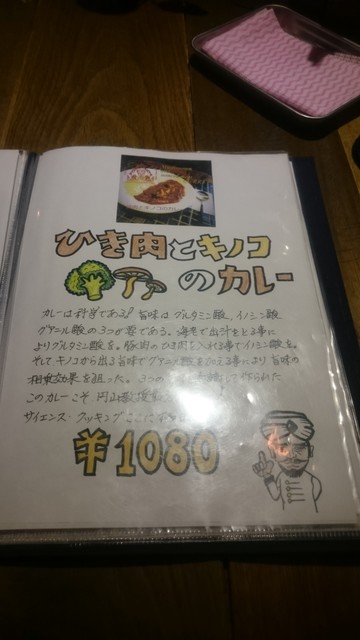 ひき肉とキノコ
のカレー
カレーは科学である! 旨味はグルタミン酸、イノシン酸
グアニル酸の3つが要である。海老で出汁をとる事に
よりグルタミン酸を。豚肉のひき肉を入れる事でイノシン酸を。
そしてキノコから出る旨味でグアニル酸を加える事により旨味の
相乗効果を狙った。3つの
このカレーこそ 円山
サイエンス・クッキングここに
¥1080